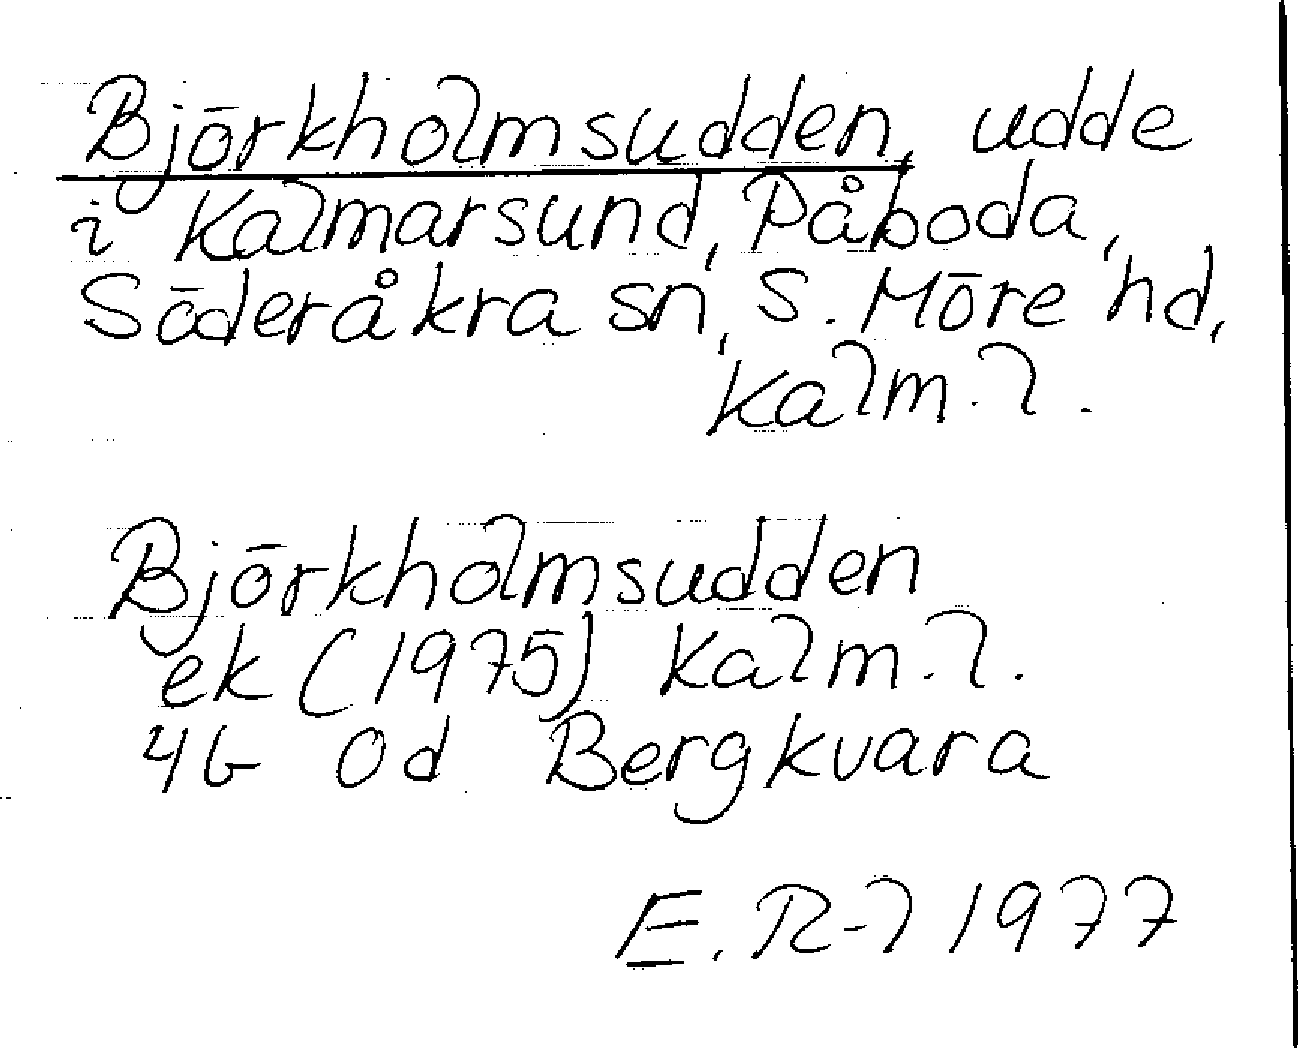 Björkholmsudden, udde
i Kalmarsund, Påboda,
Söderåkra sn, S. Möre hd,
Kalm. l.
Björkholmsudden
ek (1975) Kalm. l.
4G 0d Bergkvara
E. R-l 1977